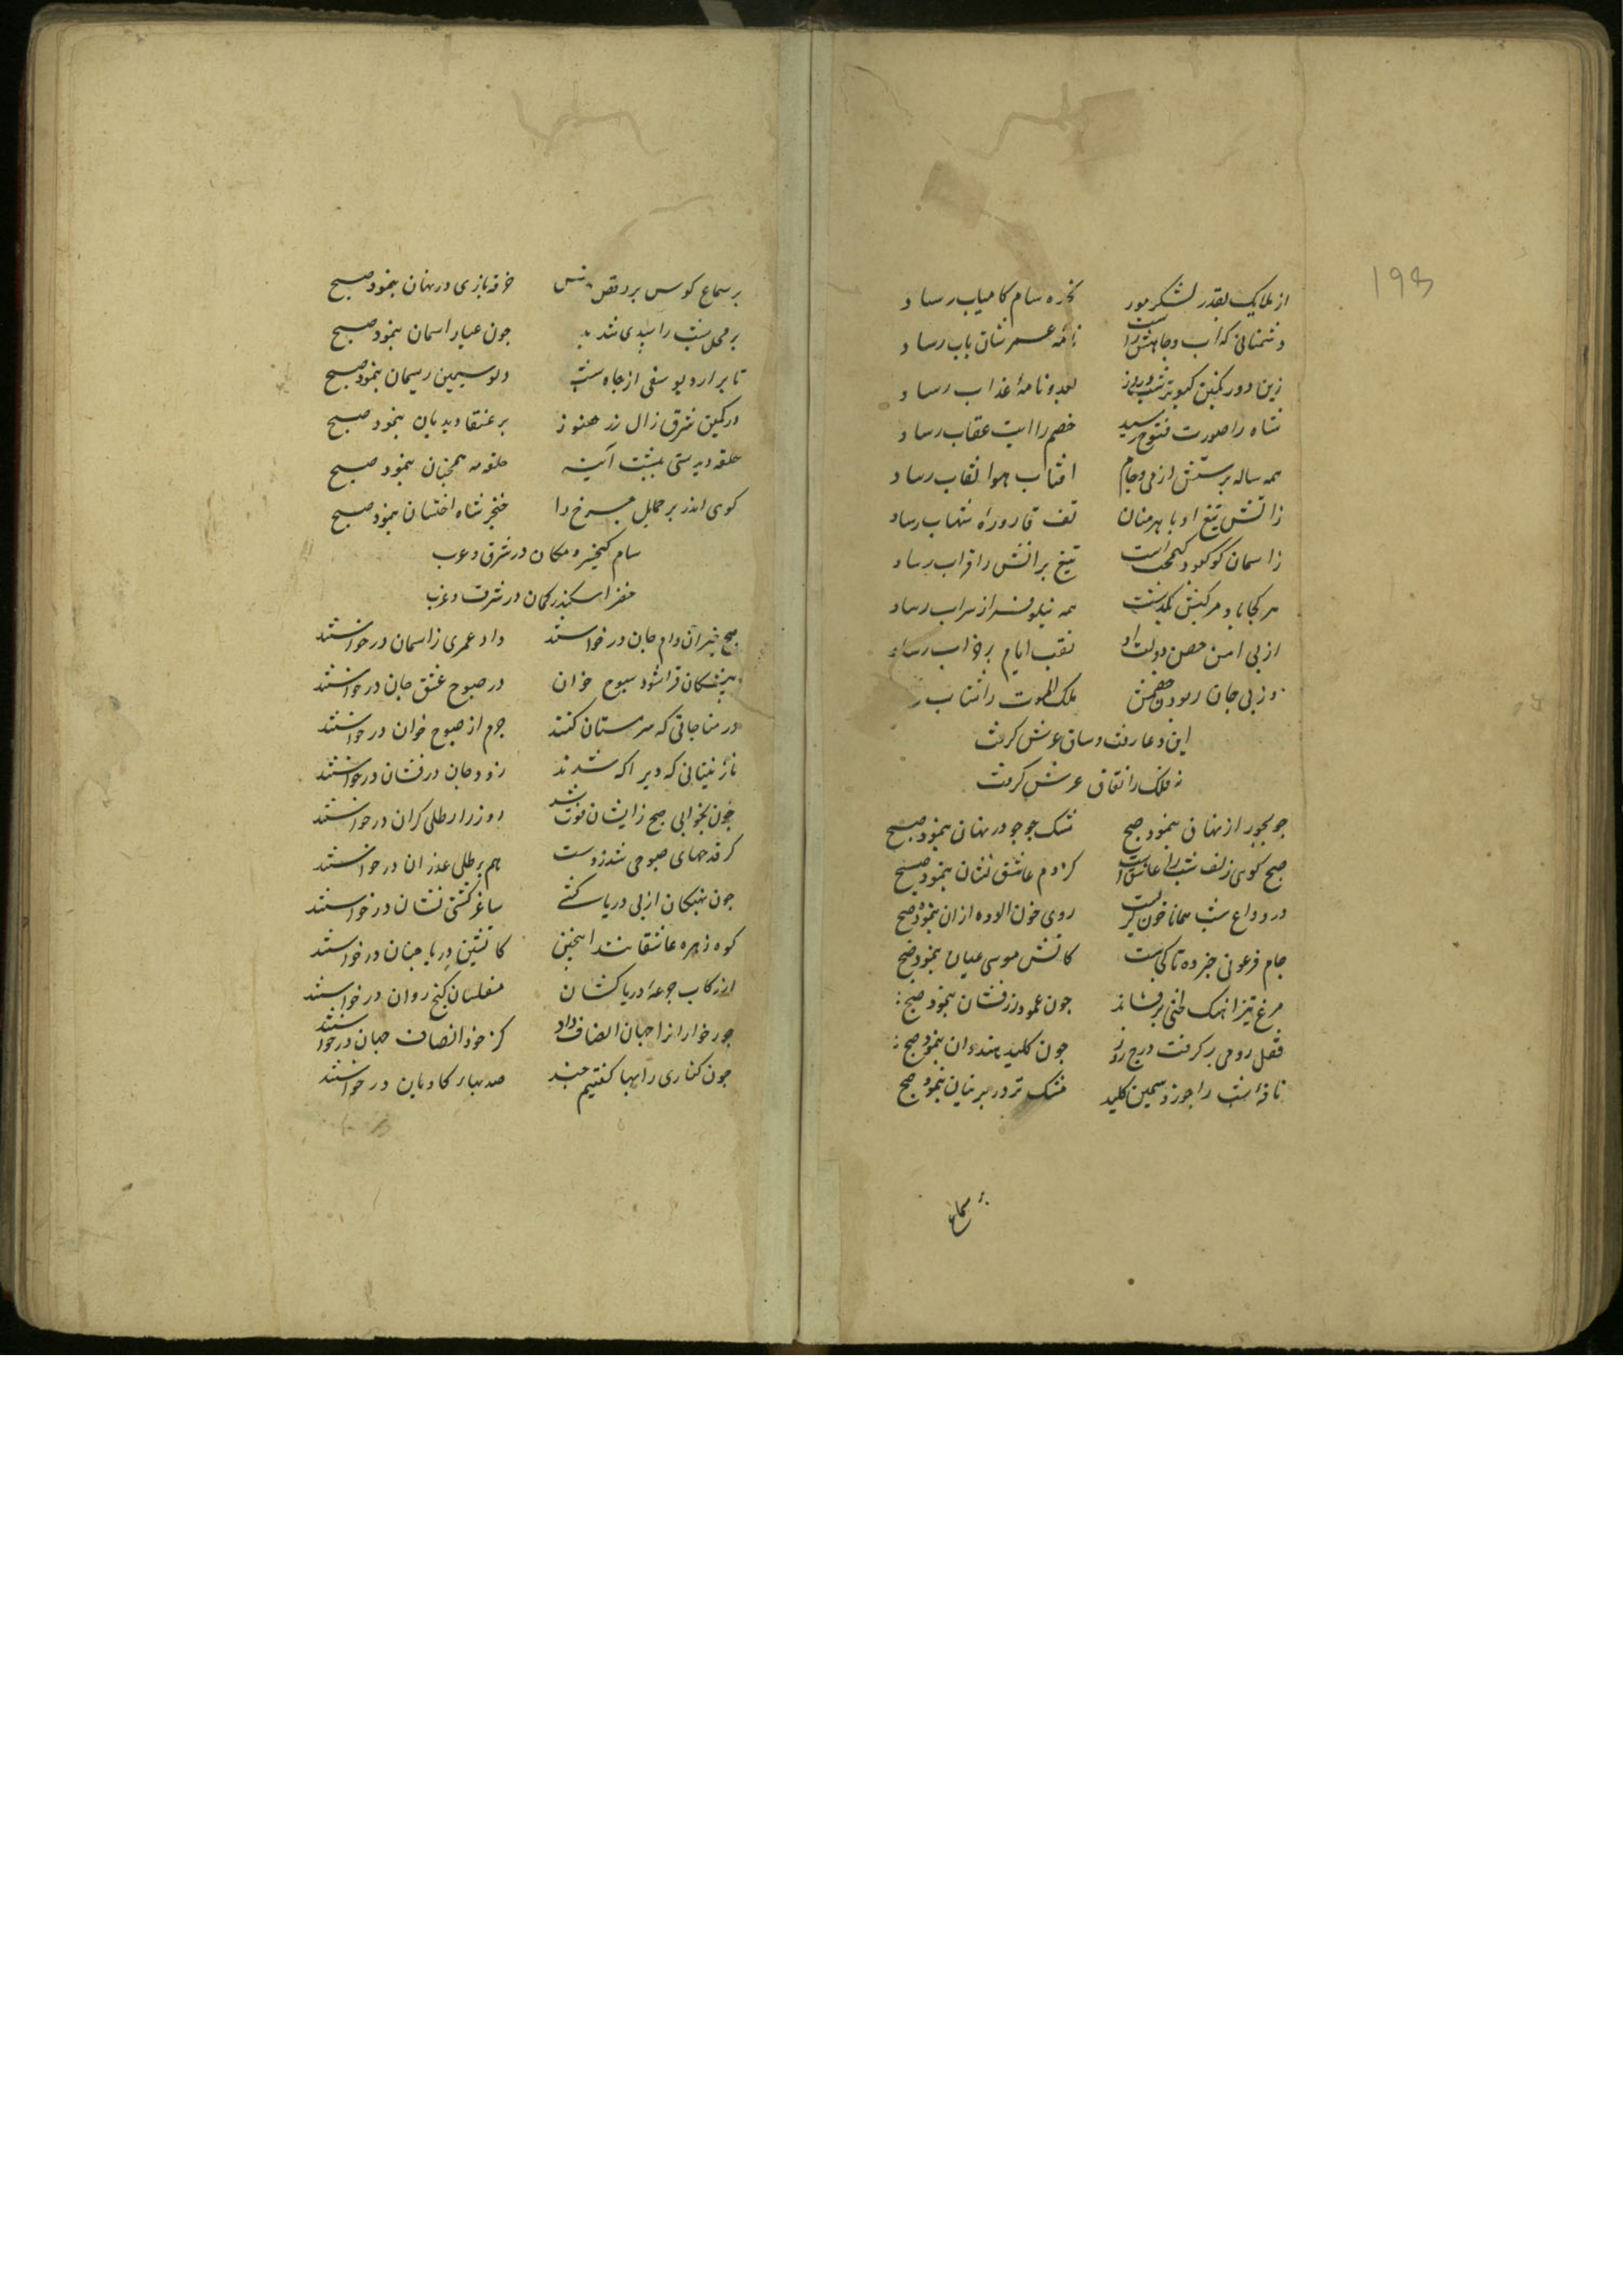 از ملایک بقدر لشکر مور نجره سام کامیاب رساد
دشمنانی که آب وجاهش راست نامه عمرشان باب رساد
زین دو رنگین کبوتر شب و روز بعدو نامهٔ عذاب رساد
شاه را صورت فتوح رسید خصم را ایت عقاب رساد
همه ساله پرستش از می و جام افتاب هوا نقاب رساد
زاتش تیغ او باهرمنان تف قارورهٔ شهاب رساد
زاسمان کو کبود کیمخت است تیغ برانش را قراب رساد
هر کجا باد مرکبش بگذشت همه نیلوفر از سراب رساد
از پی امن حصن دولت او نقب ایام بر خراب رساد
وز پی جان ربودن خصمش ملک الموت را شتاب
این دعا رفت و ساق عرش گرفت
نه فلک را نفاق عرش گرفت
جو بجو راز نهان بنمود صبح مشک جو جو در نهان بنمود صبح
صبح گوی زلف شب را عاشق است کز دم عاشق نشان بنمود صبح
در وداع شب همانا خون گریست روی خون الوده ازان بنموده صبح
جام فرعونی خبر ده تا کجاست کاتش موسی عیان بنمود صبح
مرغ تیز اهنگ لختی پر فشاند جون عمود زرفشان بنمود صبح
قفل رومی برگرفت درج روز جون کلید هندوان بنمود صبح
نافهٔ شب را جو زد سیمین کلید مشک تر در پرنیان بنمود صبح
بر سماع
بر سماع کوس بر رقص خرقه بازی در نهان بنمود صبح
بر محل شب را سپیدی شد پدید جون عیار اسمان بنمود صبح
تا برارد یوسفی از جاه شب دلو سیمین ریسمان بنمود صبح
در کمین شرق زال زر هنوز پر عنقا دیدبان بنمود صبح
حلقه دیدستی بپشت آینه حلقه مه همچنان بنمود صبح
گوی اندر بر حمایل جرخ را خنجر شاه اخستان بنمود صبح
سام کیخسرو مکان در شرق و غرب
خضر اسکندر کمان در شرق و غرب
صبح خیزان وام جان درخواستند داد عمری زاسمان درخواستند
در صبوح عشق جان درخواستند
در مناجاتی که سرمستان کنند جرم از صبوح خوان درخواستند
نازنینانی که دیر اگه شدند زود جان درفشان درخواستند
چون بخوابی صبح زایشان فوت شد روز را رطلی گران درخواستند
گر قدحهای صبوحی شد ز دست هم بر رطلی عذر ان درخواستند
جون نهنگان از پی دریا کشی ساغر کشتی نشان درخواستند
کوه زهره عاشقانند اینچنین کاتشین دریا چنان درخواستند
از رکاب جرعهٔ دریا کشان مفلسان گنج روان درخواستند
جورخواران از جهان انصاف داد کز خود انصاف جهان درخواستند
جون کناری را بها گفتیم جند صد بهار کاویان درخواستند